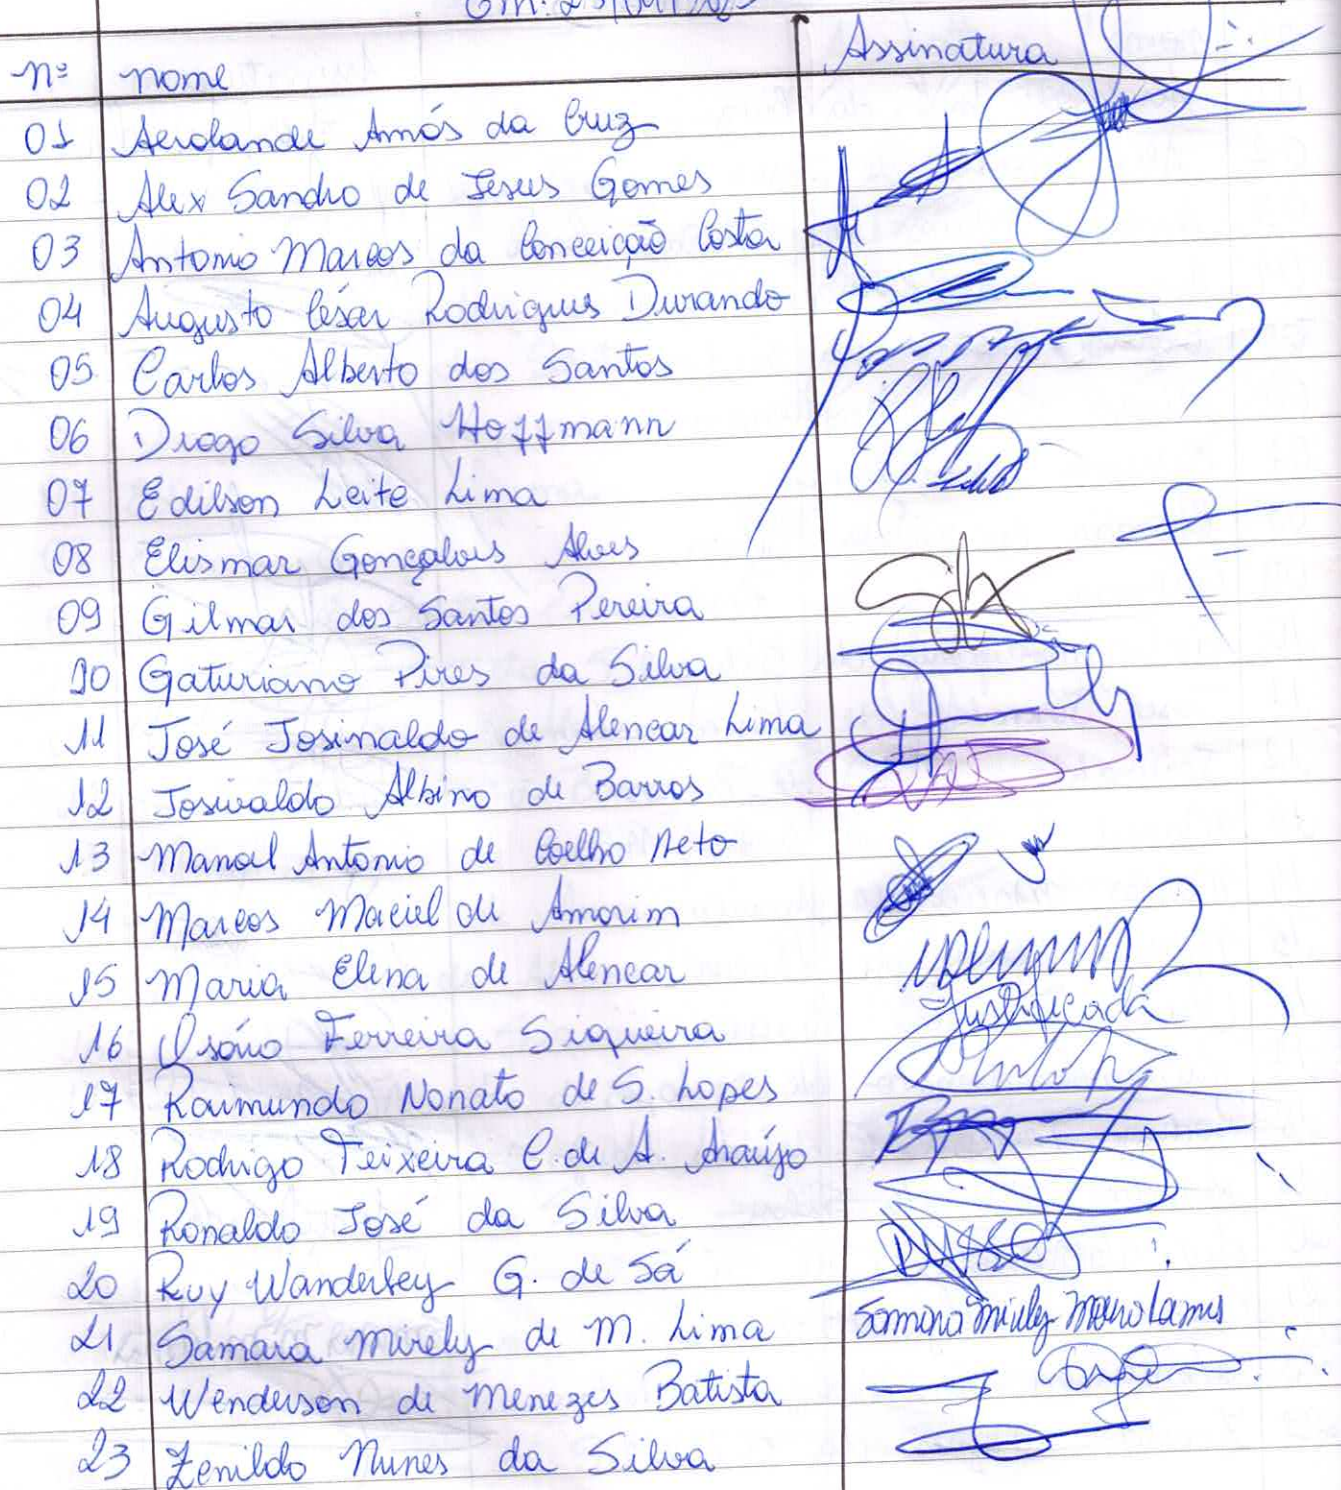 Nº Nome Assinatura
01 Aerolande Amós da Cruz
02 Alex Sandro de Jesus Gomes
03 Antonio Marcos da Conceição Costa
04 Augusto César Rodrigues Durando
05 Carlos Alberto dos Santos
06 Diogo Silva Hoffmann
07 Edilson Leite Lima
08 Elismar Gonçalves Alves
09 Gilmar dos Santos Pereira
10 Gaturiano Pires da Silva
11 José Josinaldo de Alencar Lima
12 Josivaldo Albino de Barros
13 Manoel Antonio de Coelho Neto
14 Marcos Maciel de Amorim
15 Maria Elena de Alencar
16 Osório Ferreira Siqueira Justificada
17 Raimundo Nonato de S. Lopes
18 Rodrigo Teixeira C. de A. Araújo
19 Ronaldo José da Silva
20 Ruy Wanderley G. de Sá
21 Samara Mirely de M. Lima Samara Mirely
22 Wenderson de Menezes Batista
23 Zenildo Nunes da Silva